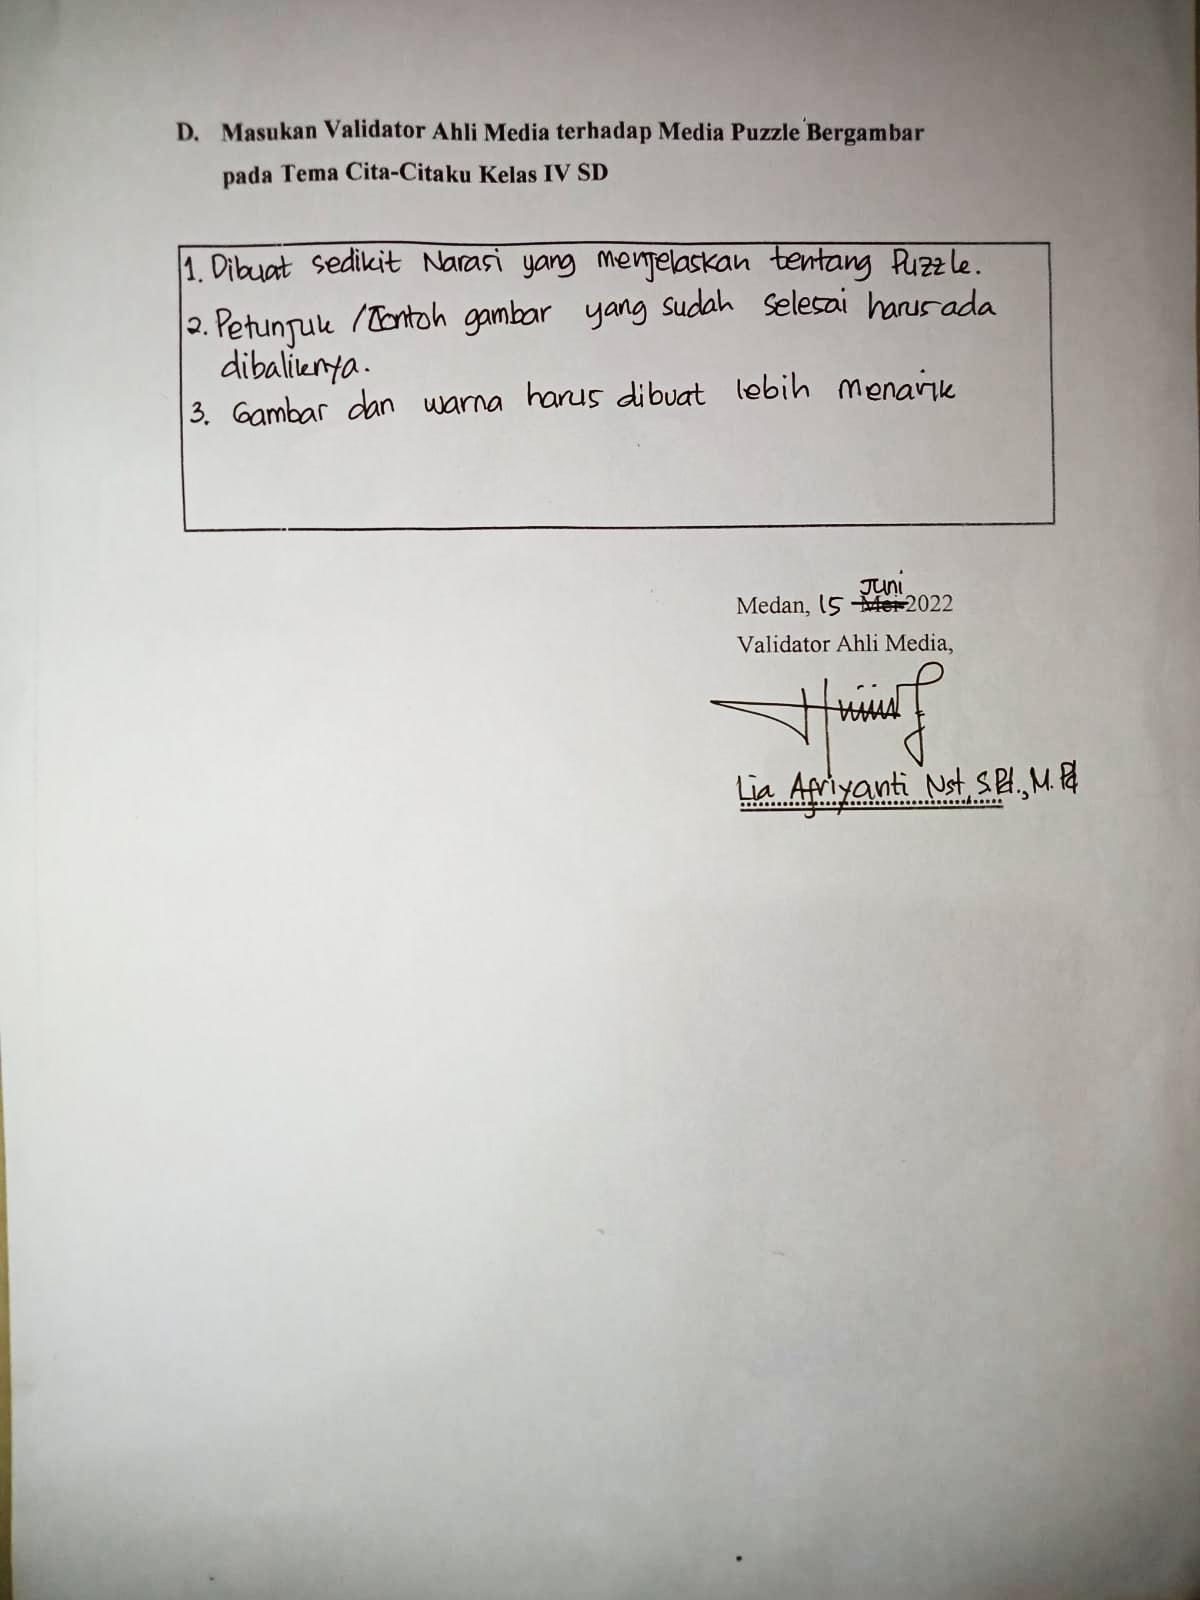 D. Masukan Validator Ahli Media terhadap Media Puzzle Bergambar
pada Tema Cita-Citaku Kelas IV SD
1. Dibuat sedikit Narasi yang menjelaskan tentang Puzzle.
2. Petunjuk / Contoh gambar yang sudah selesai harus ada
dibaliknya.
3. Gambar dan warna harus dibuat lebih menarik
Juni
Medan, 15 Mei 2022
Validator Ahli Media,
Lia Afriyanti Nst, S.Pd., M.Pd